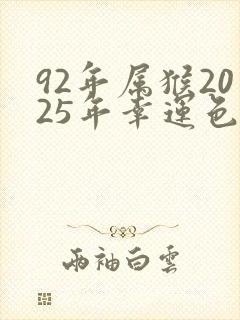 92年属猴20
25年幸運色
两袖白雲